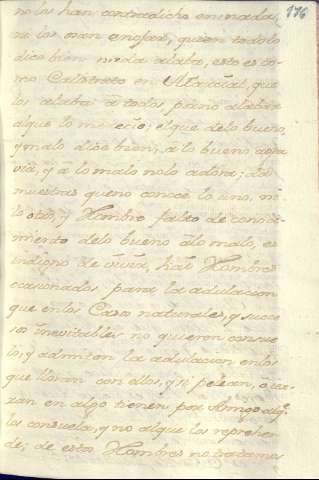 176
no les han contradicho en nada,
ni los osan enojar, quien todo lo
dice bien nada alaba, esto es co-
mo Calistrato en Marcial, que
los alaba à todos p.r no alabar
al que lo merece; el que de lo bueno,
y malo dice bien, à lo bueno agra
via, y à lo malo no lo adora; da
muestras que no conoce lo uno, ni
lo otro, y Hombre falto de conoci-
miento de lo bueno à lo malo, es
indigno de vivir, hai Hombres
ocasionados para la adulacion
que en los Casos naturales, y suce
sos inevitables no quieren consue
lo, y admiten la adulacion en los
que lloran con ellos, y si pelean, o ier-
ran en algo tienen por Amigo al q.e
los consuela, y no al que los reprehen
de; de estos Hombres no tratamos